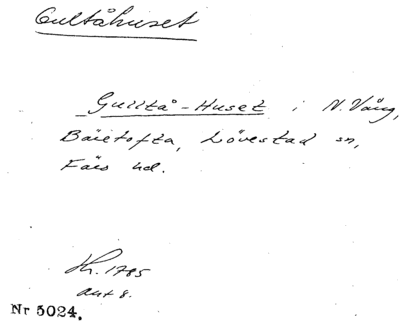 Gultåhuset
Gulltå-Huset i N. Vång,
Bäretofta, Lövestad sn,
Färs hd.
Kh. 1785
akt 8.
Nr 5024.